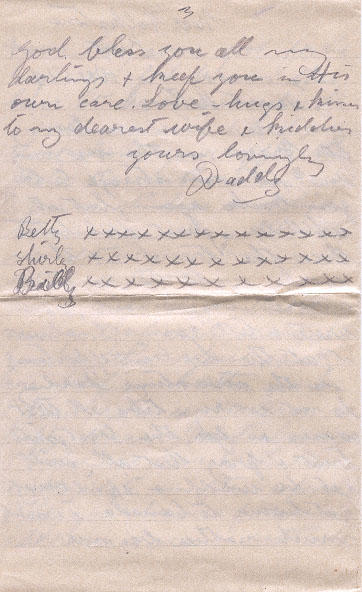 3
God bless you all my
darlings & keep you in His
own care. Love - hugs & kisses
to my dearest wife & kiddies
yours lovingly
Daddy
Betty xxxxxxxxxxxxxxxx
Shirley xxxxxxxxxxxxxxxx
Billy xxxxxxxxxxxxxx